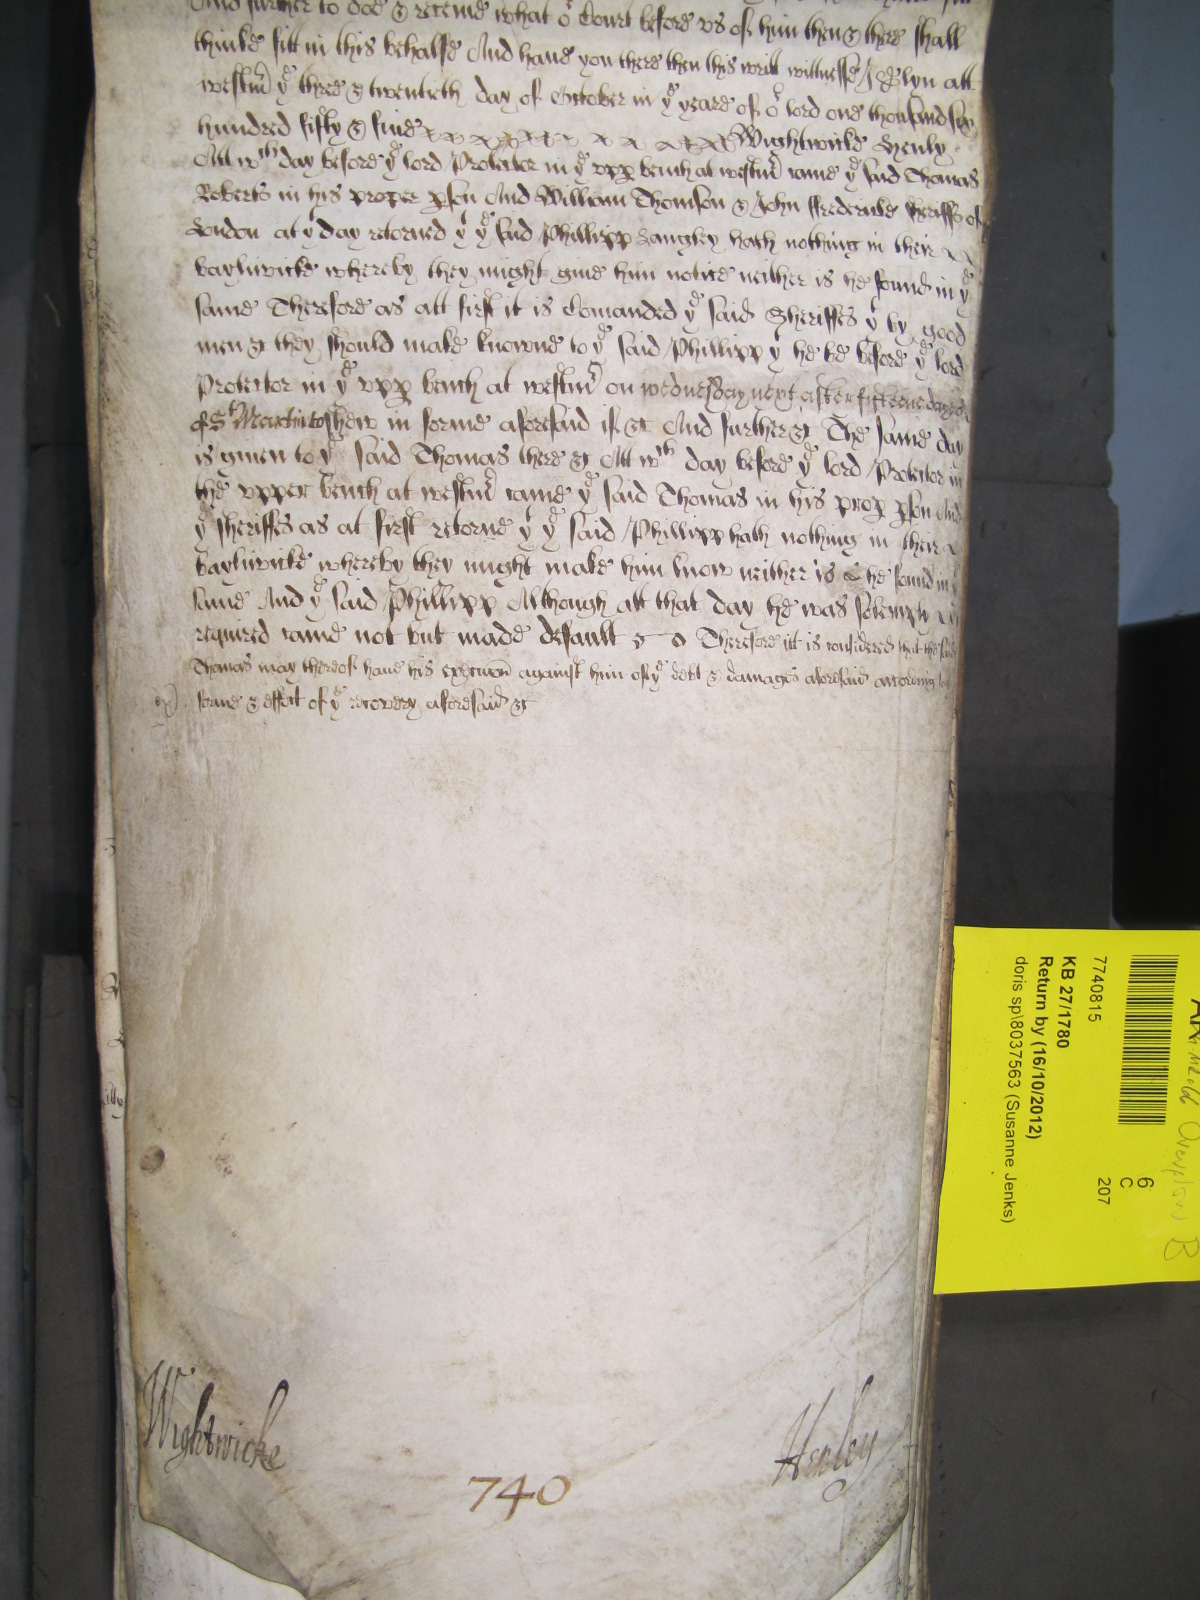 And further to doe & receive what or Court before us of him then & there shall
thinke fitt in this behalfe And have you there then this writt wittnesse J Glyn att
westmr ye three & twentieth day of October in ye yeare of or lord one thousand six
hundred fifty & five Wightwicke Henly
Att wch day before ye lord Protector in ye upp bench at westmr came ye said Thomas
Roberts in his proper pson And William Thomson & John Frederick sheriffs of
London at yt day retorned yt ye said Phillipp Langley hath nothing in their
bayliwicke whereby they might give him notice neither is he found in ye
same Therefore as att first it is Comanded ye said Sheriffes yt by good
men & they should make knowne to ye said Phillipp yt he be before ye lord
Protector in ye upp bench at westmr on wednesday next after fifteene dayes
of St Martin to shew in forme aforesaid if &c And further &c The same day
is given to ye said Thomas there &c Att wch day before ye lord Protector in
the upper bench at westmr came ye said Thomas in his prop pson And
ye sheriffes as at first retorne yt ye said Phillipp hath nothing in their
bayliwicke whereby they might make him know neither is he found in ye
same And ye said Phillipp Although att that day he was solempnly
required came not but made default Therefore itt is considered that the said
Thomas may thereof have his execucon against him of ye debt & damages aforesaid according to
forme & effect of ye recovery aforesaid &c
Wightwicke
Henley
740
7740815
KB 27/1780
Return by (16/10/2012)
doris sp\8037563 (Susanne Jenks)
6
C
207